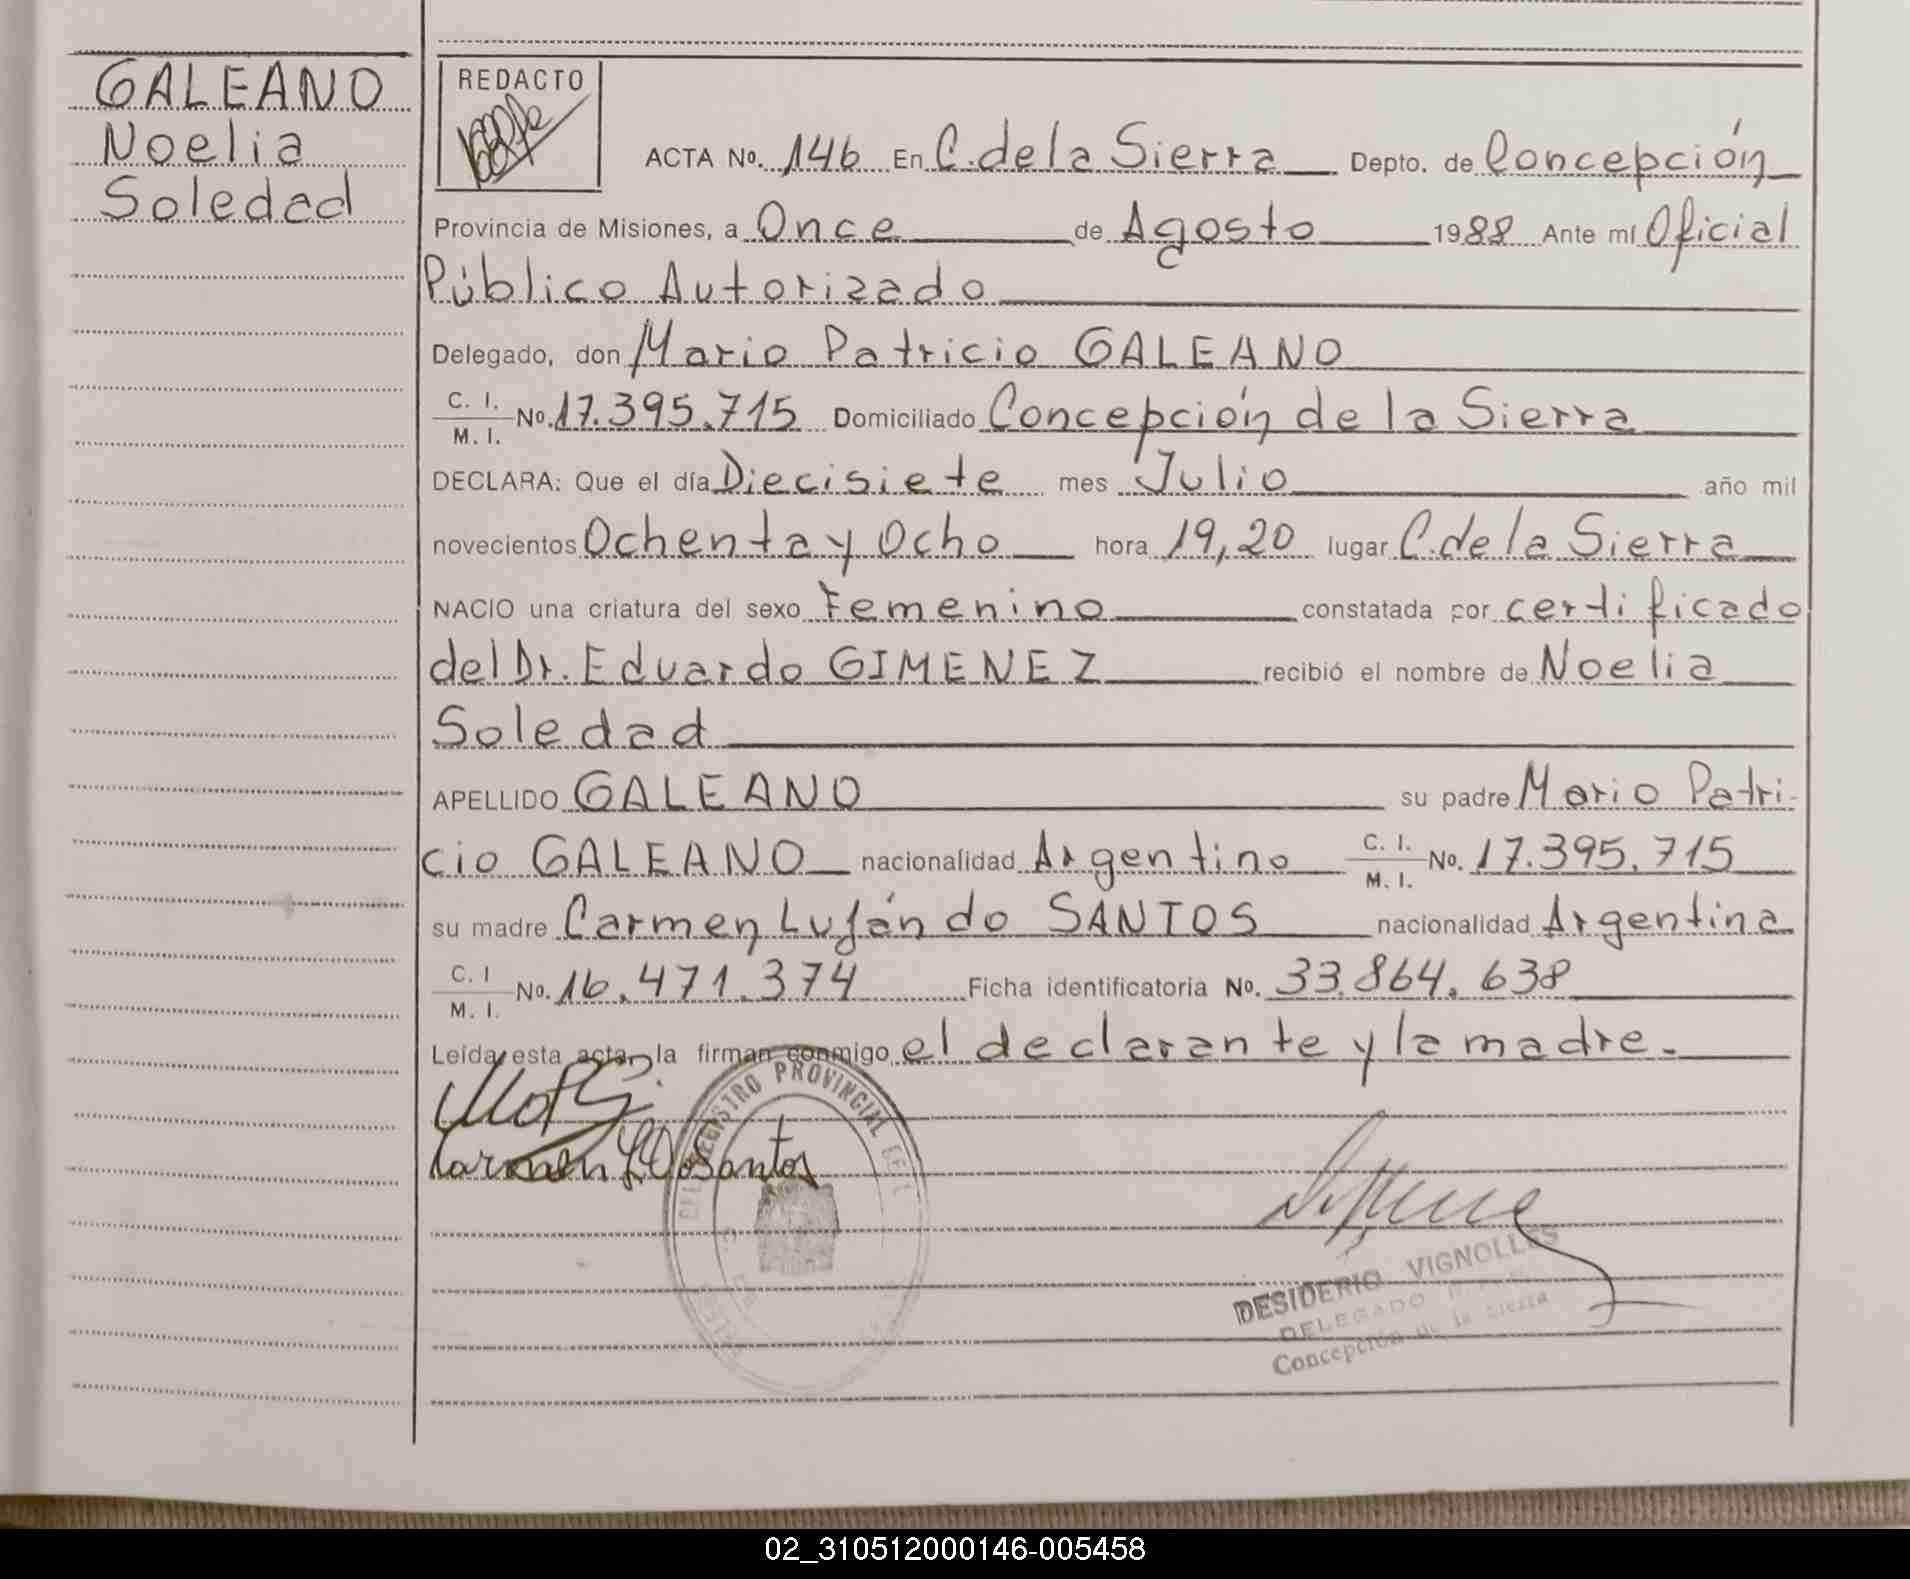 GALEANO
Noelia
Soledad
REDACTO
ACTA No. 146 En C. de la Sierra Depto. de Concepción
Provincia de Misiones, a Once de Agosto 1988 Ante mí Oficial
Público Autorizado
Delegado, don Mario Patricio GALEANO
C. I. M. I. No. 17.395.715 Domiciliado Concepción de la Sierra
DECLARA: Que el día Diecisiete mes Julio año mil
novecientos Ochenta y Ocho hora 19,20 lugar C. de la Sierra
NACIO una criatura del sexo Femenino constatada por certificado
del Dr. Eduardo GIMENEZ recibió el nombre de Noelia
Soledad
APELLIDO GALEANO su padre Mario Patri-
cio GALEANO nacionalidad Argentino C. I. M. I. No. 17.395.715
su madre Carmen Luján do SANTOS nacionalidad Argentina
C. I M. I. No. 16.471.374 Ficha identificatoria No. 33.864.638
Leída esta acta, la firman conmigo el declarante y la madre.
Carmen L Do Santos
REGISTRO PROVINCIAL
DESIDERIO VIGNOLLES
DELEGADO
Concepción de la Sierra
02_310512000146-005458